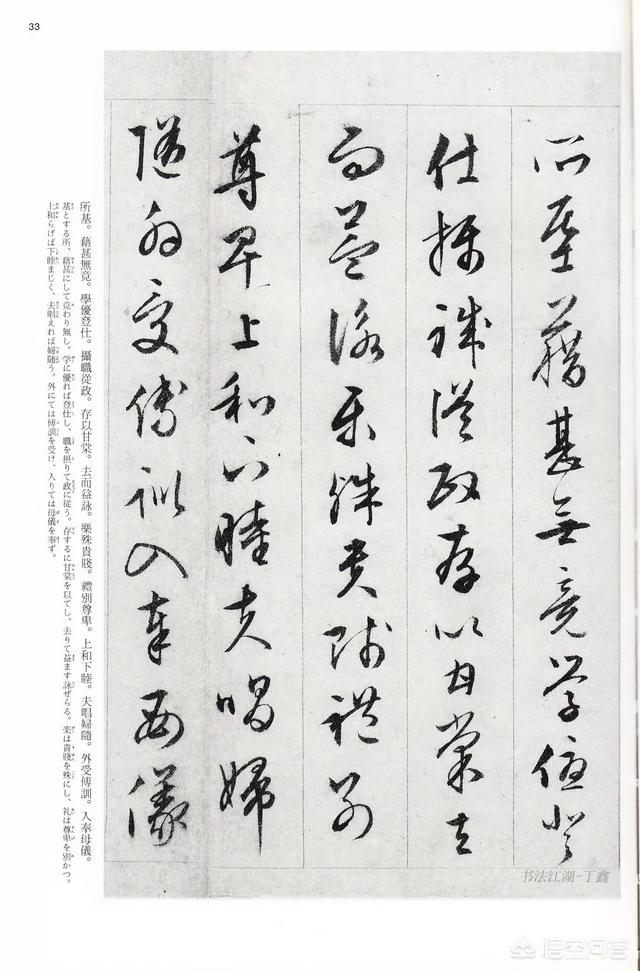 33
所基藉甚無竟學優登
仕攝職從政存以甘棠去
而益詠樂殊貴賤禮別
尊卑上和下睦夫唱婦
隨外受傅訓入奉母儀
所基。藉甚無竟。學優登仕。攝職從政。存以甘棠。去而益詠。樂殊貴賤。禮別尊卑。上和下睦。夫唱婦隨。外受傅訓。入奉母儀。
基とする所、藉甚にして竟わり無し。学に優れば登仕し、職を摂りて政に従う。存するに甘棠を以てし、去りて益ます詠ぜらる。楽は貴賤を殊にし、礼は尊卑を別かつ。
上和らげば下睦まじく、夫唱えれば婦随う。外にては傅訓を受け、入りては母儀を奉ず。
书法江湖-丁鑫
悟空问答